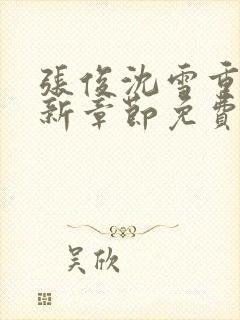 張俊沈雪重
新章節免費
吴欣